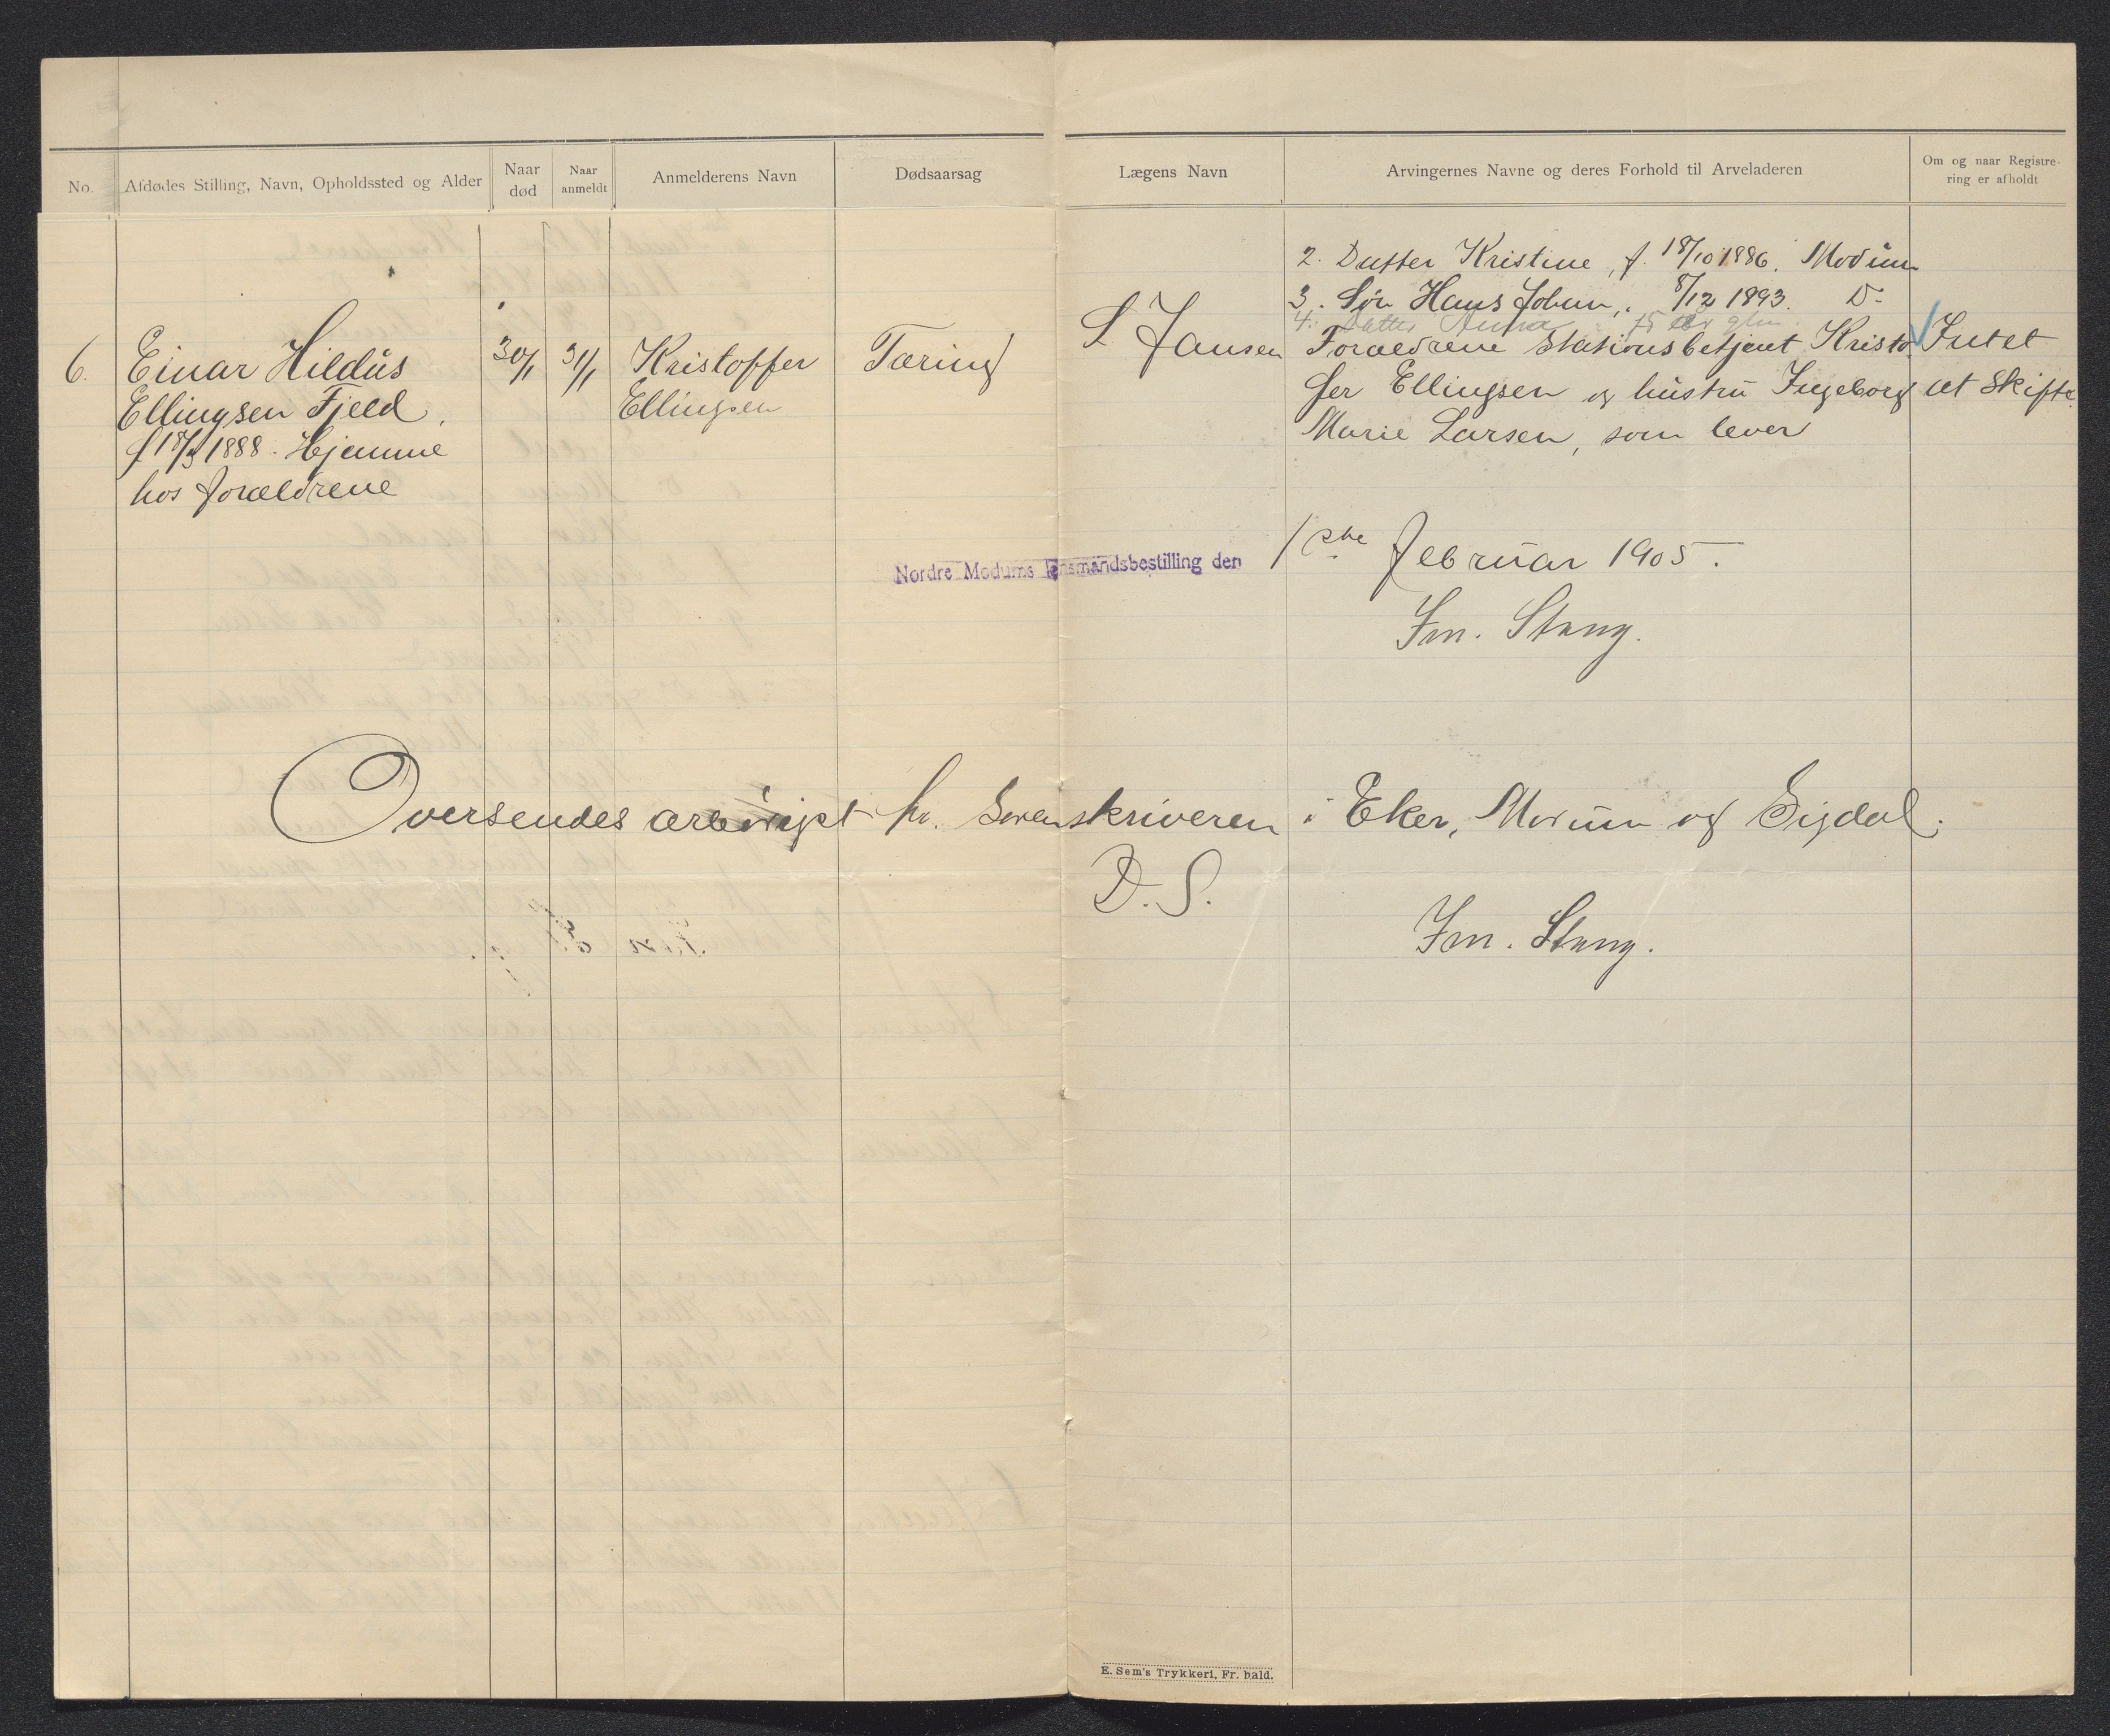 No.
Afdødes Stilling, Navn, Opholdssted og Alder
Naar død
Naar anmeldt
Anmelderens Navn
Dødsaarsag
Lægens Navn
Arvingernes Navne og deres Forhold til Arveladeren
Om og naar Registre-
ring er afholdt
2. Datter Kristine, f. 18/10 1886. Modum
3. Søn Hans Johan, " 8/12 1893. Do
4. Datter Anna 15 år glm.
6.
Einar Hildus
Ellingsen Fjeld,
f 18/5 1888. Hjemme
hos forældrene
30/1
31/1
Kristoffer
Ellingsen
Tæring
L Jansen
Forældrene Stationsbetjent Kristof
fer Ellingsen og hustru Ingeborg
Marie Larsen, som lever
Intet
at skifte.
Nordre Modums lensmandsbestilling den 1ste februar 1905.
Fm. Stang.
Oversendes ærbødigst hr. Sorenskriveren i Eker, Modum og Sigdal.
D. S.
Fm. Stang.
E. Sem's Trykkeri, Fr. hald.